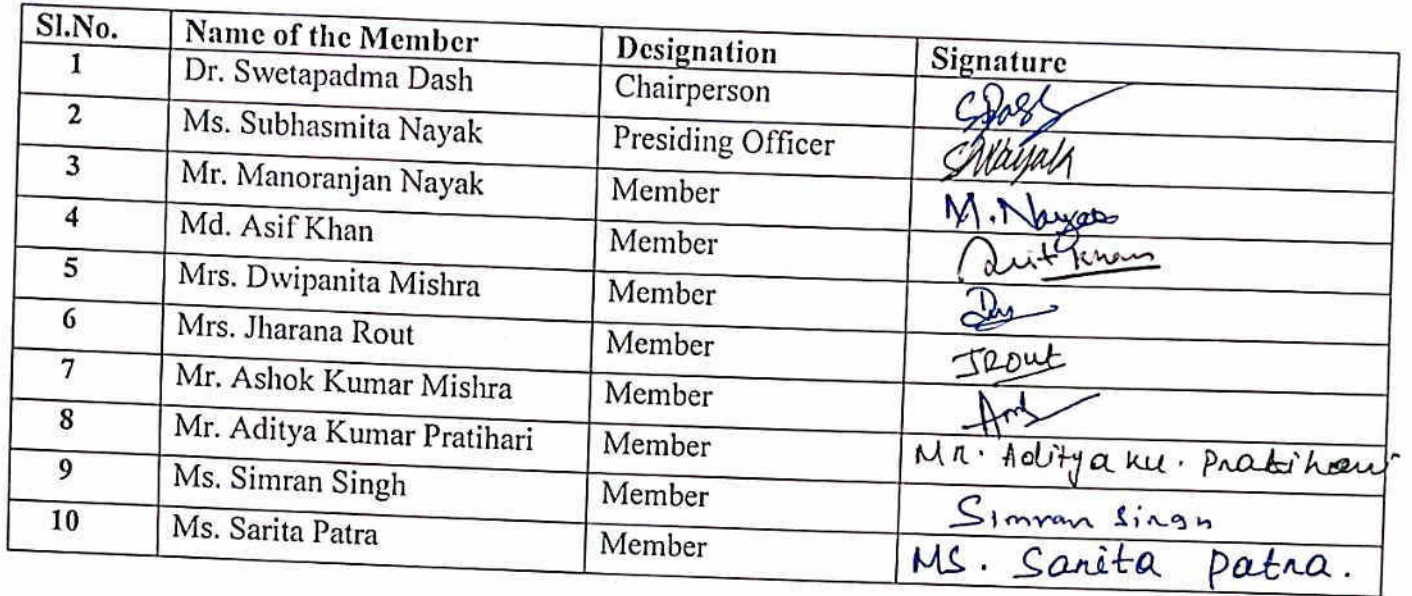 Sl.No. Name of the Member Designation Signature
1 Dr. Swetapadma Dash Chairperson SDash
2 Ms. Subhasmita Nayak Presiding Officer SNayak
3 Mr. Manoranjan Nayak Member M. Nayak
4 Md. Asif Khan Member Asif Khan
5 Mrs. Dwipanita Mishra Member
6 Mrs. Jharana Rout Member JRout
7 Mr. Ashok Kumar Mishra Member
8 Mr. Aditya Kumar Pratihari Member Mr. Aditya ku. Pratihari
9 Ms. Simran Singh Member Simran Singh
10 Ms. Sarita Patra Member MS. Sarita patra.